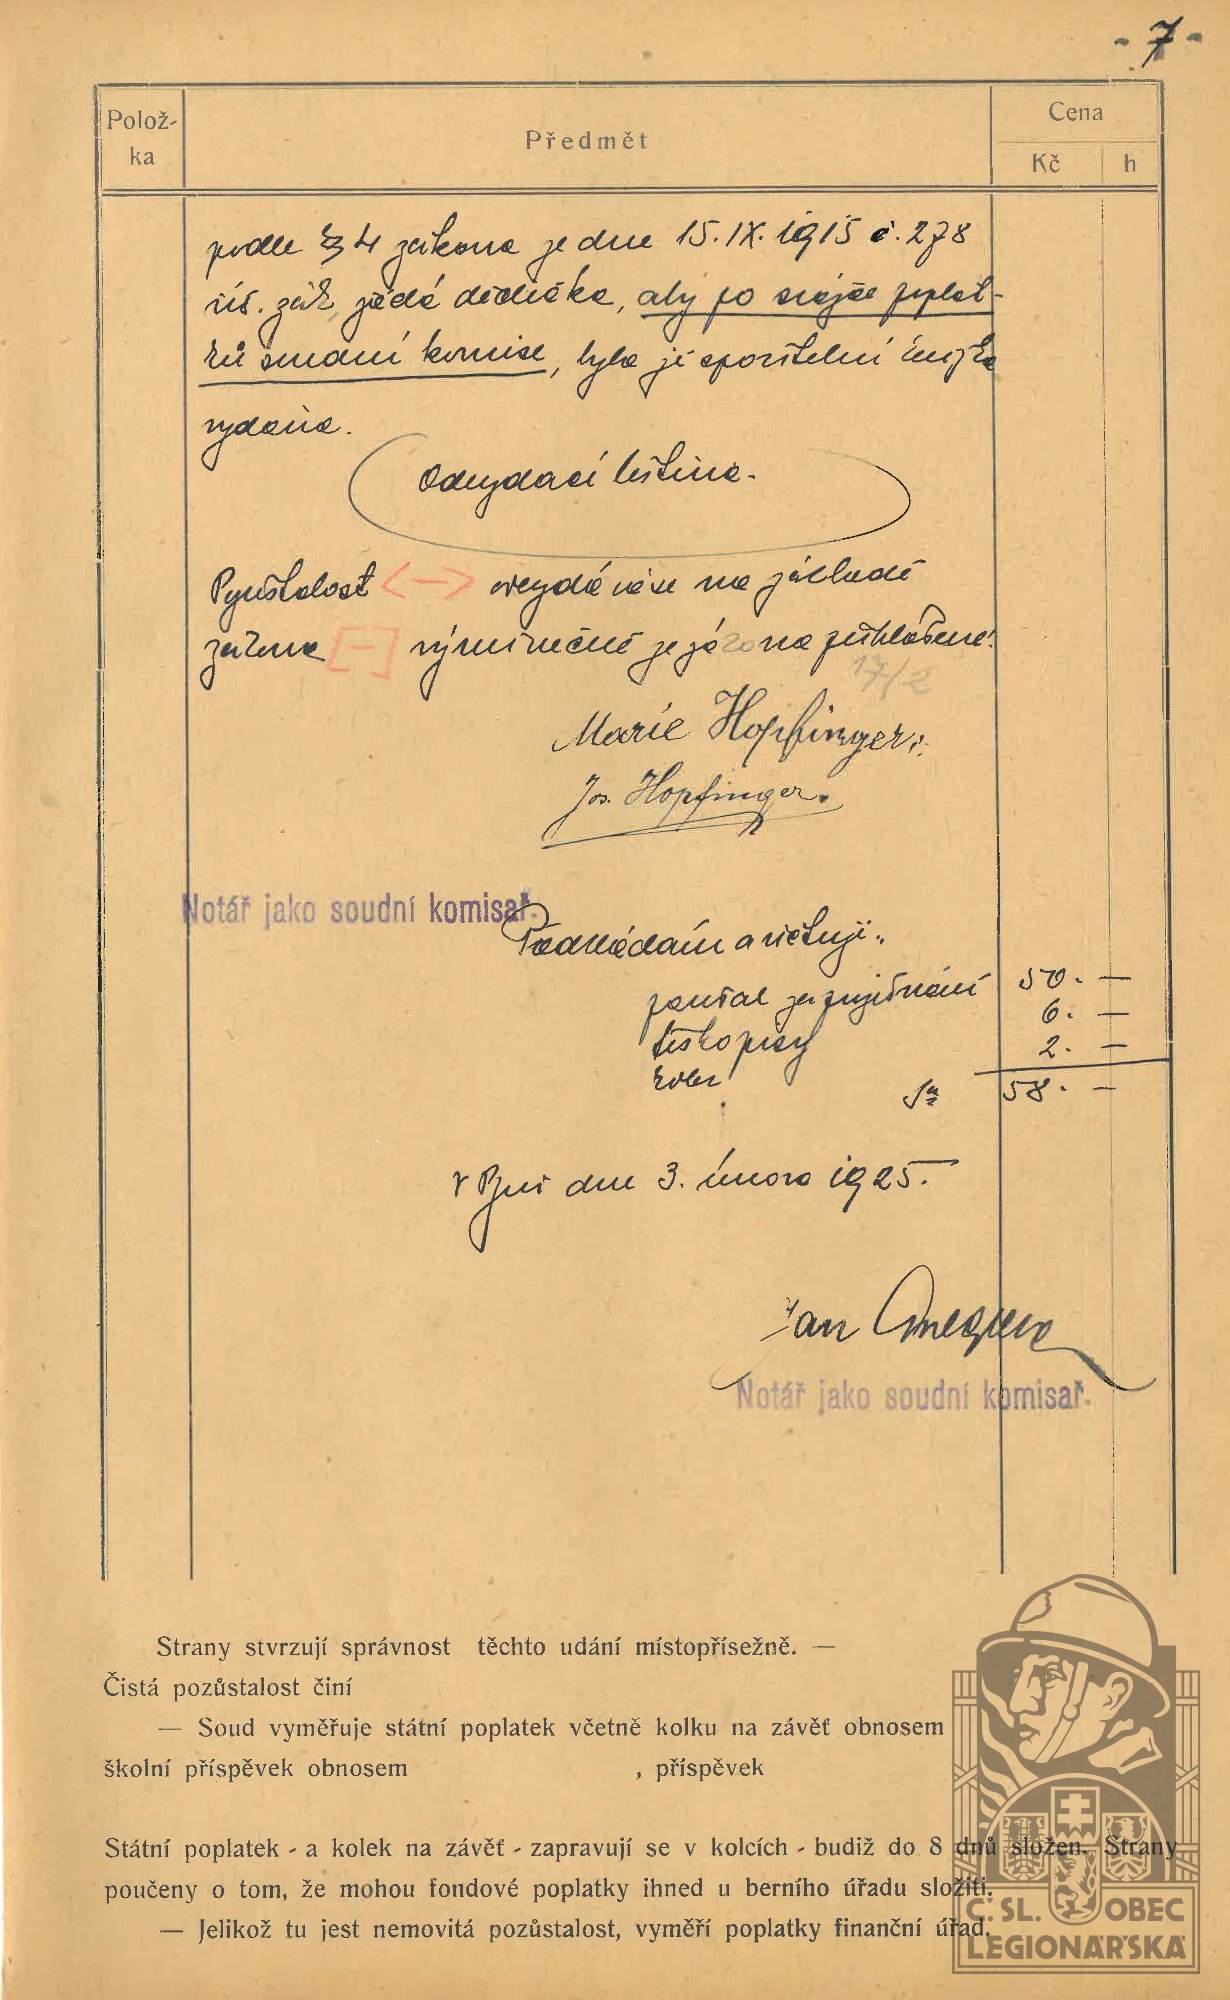 - 7 -
Polož-
ka
Předmět
Cena
Kč h
podle § 4 zákona ze dne 15. IX. 1915 č. 278
říš. zák. žádá dědička, aby po srážce poplat-
ků snad komise, byla jí spořitelní knížka
vydána.
Odevzdací listina.
Pozůstalost <—> odevzdává se na základě
zákona [—] výminečně je já na přihlášené.
17/2
Marie Hopfinger
Jos. Hopfinger.
Notář jako soudní komisař.
Předkládám a účtuji:
paušal za projednání 50. —
tiskopisy 6. —
kolek 2. —
Sa 58. —
V dne 3. února 1925.
Jan
Notář jako soudní komisař.
Strany stvrzují správnost těchto udání místopřísežně. —
Čistá pozůstalost činí
— Soud vyměřuje státní poplatek včetně kolku na závěť obnosem
školní příspěvek obnosem , příspěvek
Státní poplatek - a kolek na závěť - zapravují se v kolcích - budiž do 8 dnů složen. Strany
poučeny o tom, že mohou fondové poplatky ihned u berního úřadu složiti.
— Jelikož tu jest nemovitá pozůstalost, vyměří poplatky finanční úřad.
Č. SL. OBEC
LEGIONÁŘSKÁ